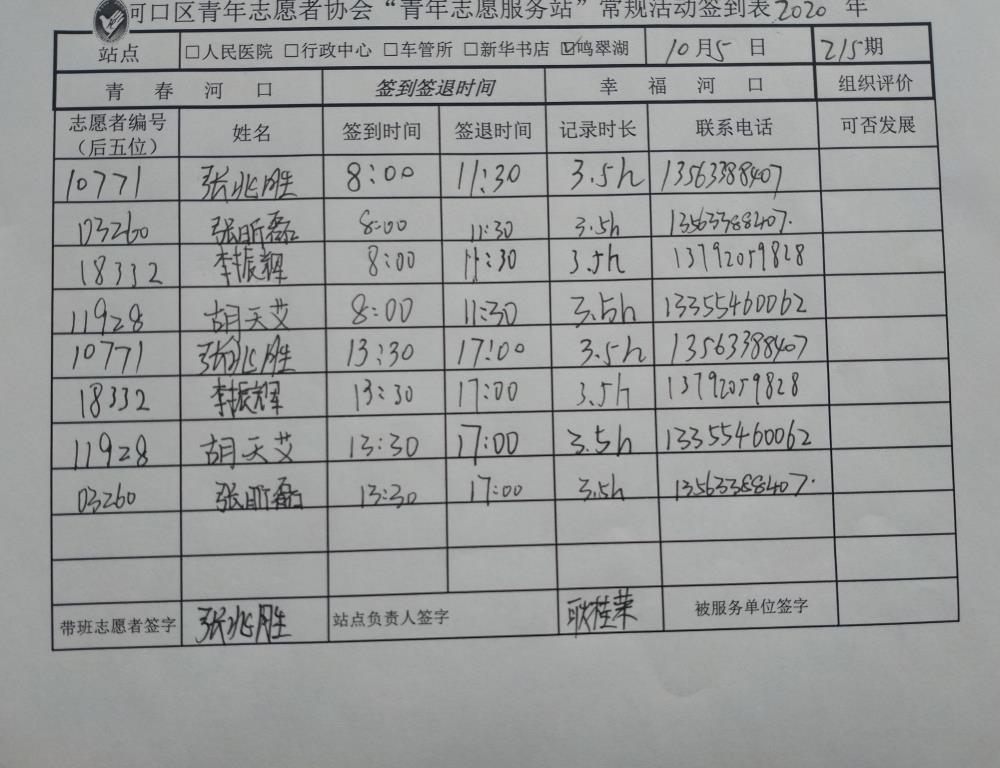 河口区青年志愿者协会“青年志愿服务站”常规活动签到表2020 年
站点 □人民医院 □行政中心 □车管所 □新华书店 ☑鸣翠湖 10月5日 215期
青春河口 签到签退时间 幸福河口 组织评价
志愿者编号（后五位） 姓名 签到时间 签退时间 记录时长 联系电话 可否发展
10771 张兆胜 8:00 11:30 3.5h 13563388407
03260 张昕磊 8:00 11:30 3.5h 13563388407.
18332 李振辉 8:00 11:30 3.5h 13792059828
11928 胡天艾 8:00 11:30 3.5h 13355460062
10771 张兆胜 13:30 17:00 3.5h 13563388407
18332 李振辉 13:30 17:00 3.5h 13792059828
11928 胡天艾 13:30 17:00 3.5h 13355460062
03260 张昕磊 13:30 17:00 3.5h 13563388407.
带班志愿者签字 张兆胜 站点负责人签字 耿桂荣 被服务单位签字